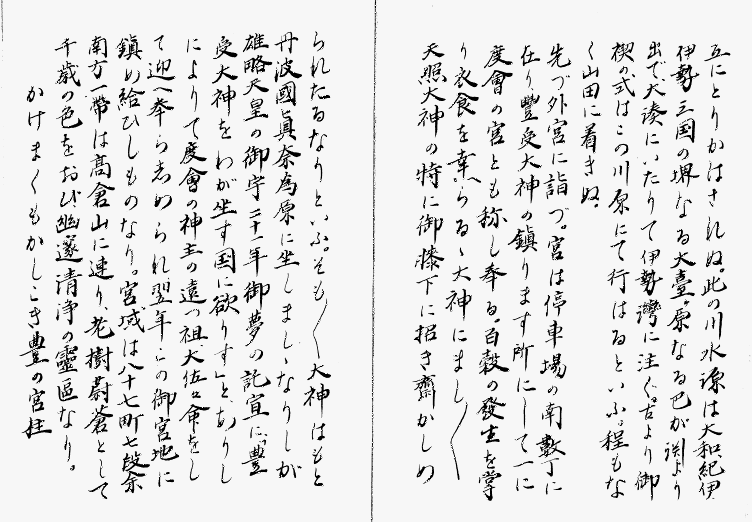 互にとりかはされぬ。此の川水源は大和紀伊
伊勢三国の堺なる大臺ヶ原なる巴が渕より
出で大湊にいたりて伊勢灣に注ぐ。古より御
禊の式はこの川原にて行はるといふ。程もな
く山田に着きぬ。
先づ外宮に詣づ。宮は停車場の南數丁に
在り豐受大神の鎮ります所にして一に
度會の宮とも称し奉る。百穀の發生を掌
り衣食を幸へらるゝ大神にまし〱
天照大神の特に御膝下に招き齋かしめ
られたるなりといふ。そも〱大神はもと
丹波國真奈為原に坐しましゝなりしが
雄略天皇の御宇二十一年御夢の託宣に「豐
受大神をわが坐す国に欲りす」とありし
によりて度會の神主の遠つ祖大佐々命をし
て迎へ奉らしめられ翌年この御宮地に
鎮め給ひしものなり。宮域は八十七町七段余
南方一帯は高倉山に連り、老樹蔚蒼として
千歳の色をおび幽邃清浄の靈區なり。
かけまくもかしこき豊の宮柱